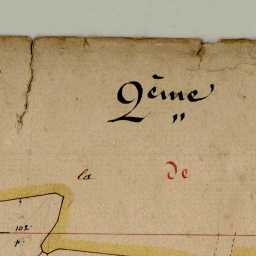 2ème
"
la De
102
p.